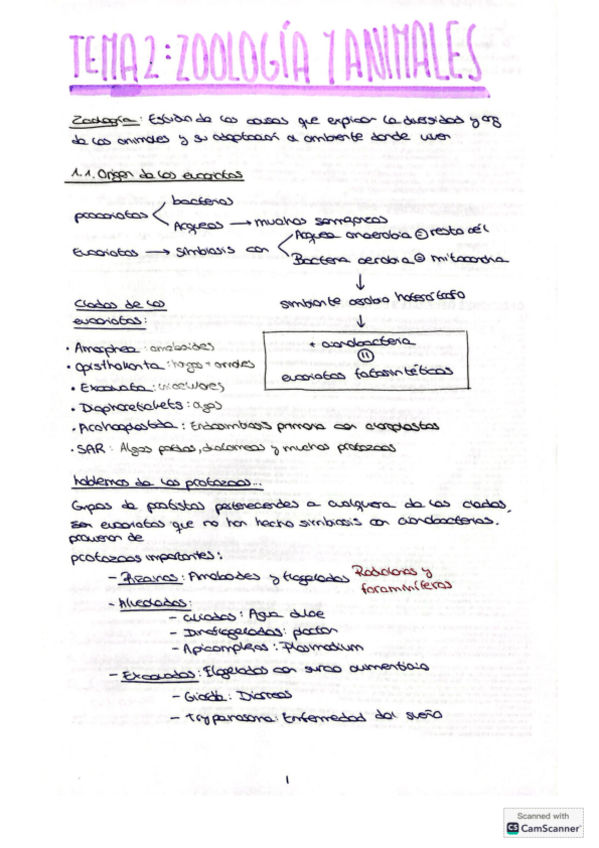 TEMA 2: ZOOLOGÍA Y ANIMALES
Zoología: Estudio de las causas que explican la diversidad y org
de los animales y su adaptación al ambiente donde viven
1.1. Origen de los eucariotas
procariotas
bacterias
Arqueas → muchas semejanzas
Eucariotas → simbiosis con
Arquea anaerobia = resto cél
Bacteria aerobia = mitocondria
↓
simbionte aerobio heterótrofo
↓
+ cianobacteria
=
eucariotas fotosintéticos
Clados de los
eucariotas:
• Amorphea: ameboides
• Opisthokonta: hongos + animales
• Excavata: unicelulares
• Diaphoretickets: algas
• Archaeplastida: Endosimbiosis primaria con cianoplastos
• SAR: Algas pardas, diatomeas y muchos protozoos
hablemos de los protozoos...
Grupos de protistas pertenecientes a cualquiera de los clados,
son eucariotas que no han hecho simbiosis con cianobacterias.
provienen de
protozoos importantes:
- Rizarios: Ameboides y flagelados Radiolarios y
foraminíferos
- Alveolados:
- Ciliados: Agua dulce
- Dinoflagelados: plancton
- Apicomplejos: Plasmodium
- Excavados: Flagelados con surco alimenticio
- Giardia: Diarreas
- Trypanosoma: Enfermedad del sueño
1
Scanned with
CS CamScanner